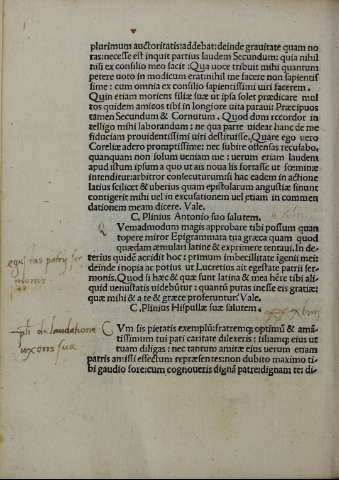 plurimum auctoritatis: addebat: deinde grauitate quam no
ras: necesse est inquit partius laudem Secundum: quia nihil
nisi ex consilio meo facit: Qua uoce tribuit mihi quantum
petere uoto in modicum erat nihil me facere non sapientis
sime: cum omnia ex consilio sapientissimi uiri facerem.
Quin etiam moriens filiæ suæ ut ipsa solet prædicare mul
tos quidem amicos tibi in longiore uita paraui: Præcipuos
tamen Secundum & Cornutum. Quod dom recordor in
telligo mihi laborandum: ne qua parte uidear hanc de me
fiduciam prouidentissimi uiri destruisse. Quare ego uero
Coreliæ adero promptissime: nec subire offensas recusabo.
quanquam non solum ueniam me: uerum etiam laudem
apud istum ipsum a quo ut ais noua lis fortasse ut fœminæ
intenditur: arbitror consecuturum si hac eadem in actione
latius scilicet & uberius quam epistolarum angustiæ sinunt
contigerit mihi uel in excusationem uel etiam in commen
dationem meam dicere. Vale.
C. Plinius Antonio suo salutem.
Vemadmodum magis approbare tibi possum quan
topere miror Epigrammata tua græca quam quod
quædam æmulari latine & exprimere tentaui. In de
terius quidē accidit hoc: primum imbecillitate īgenii mei:
deinde inopia ac potius ut Lucretius ait egestate patrii ser
monis. Quod si hæc quæ sunt latina & mea hēre tibi ali
quid uenustatis uidebūtur: quantū putas inesse eis gratiæ:
quæ mihi & a te & græce proferuntur. Vale.
C. Plinius Hispullæ suæ salutem.
egestas patrij ser
monis
pli de laudatione
uxoris suæ
CVm sis pietatis exemplū: fratremq; optimū & amā
tissimum tui pari caritate dilexeris: filiamq; eius ut
tuam diligas: nec tantum amitæ eius uerum etiam
patris amissi effectum repræsentes: non dubito maximo ti
bi gaudio fore: cum cognoueris dignā patre: dignam te: di-